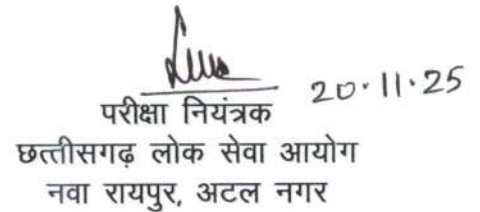 20.11.25
परीक्षा नियंत्रक
छत्तीसगढ़ लोक सेवा आयोग
नवा रायपुर, अटल नगर